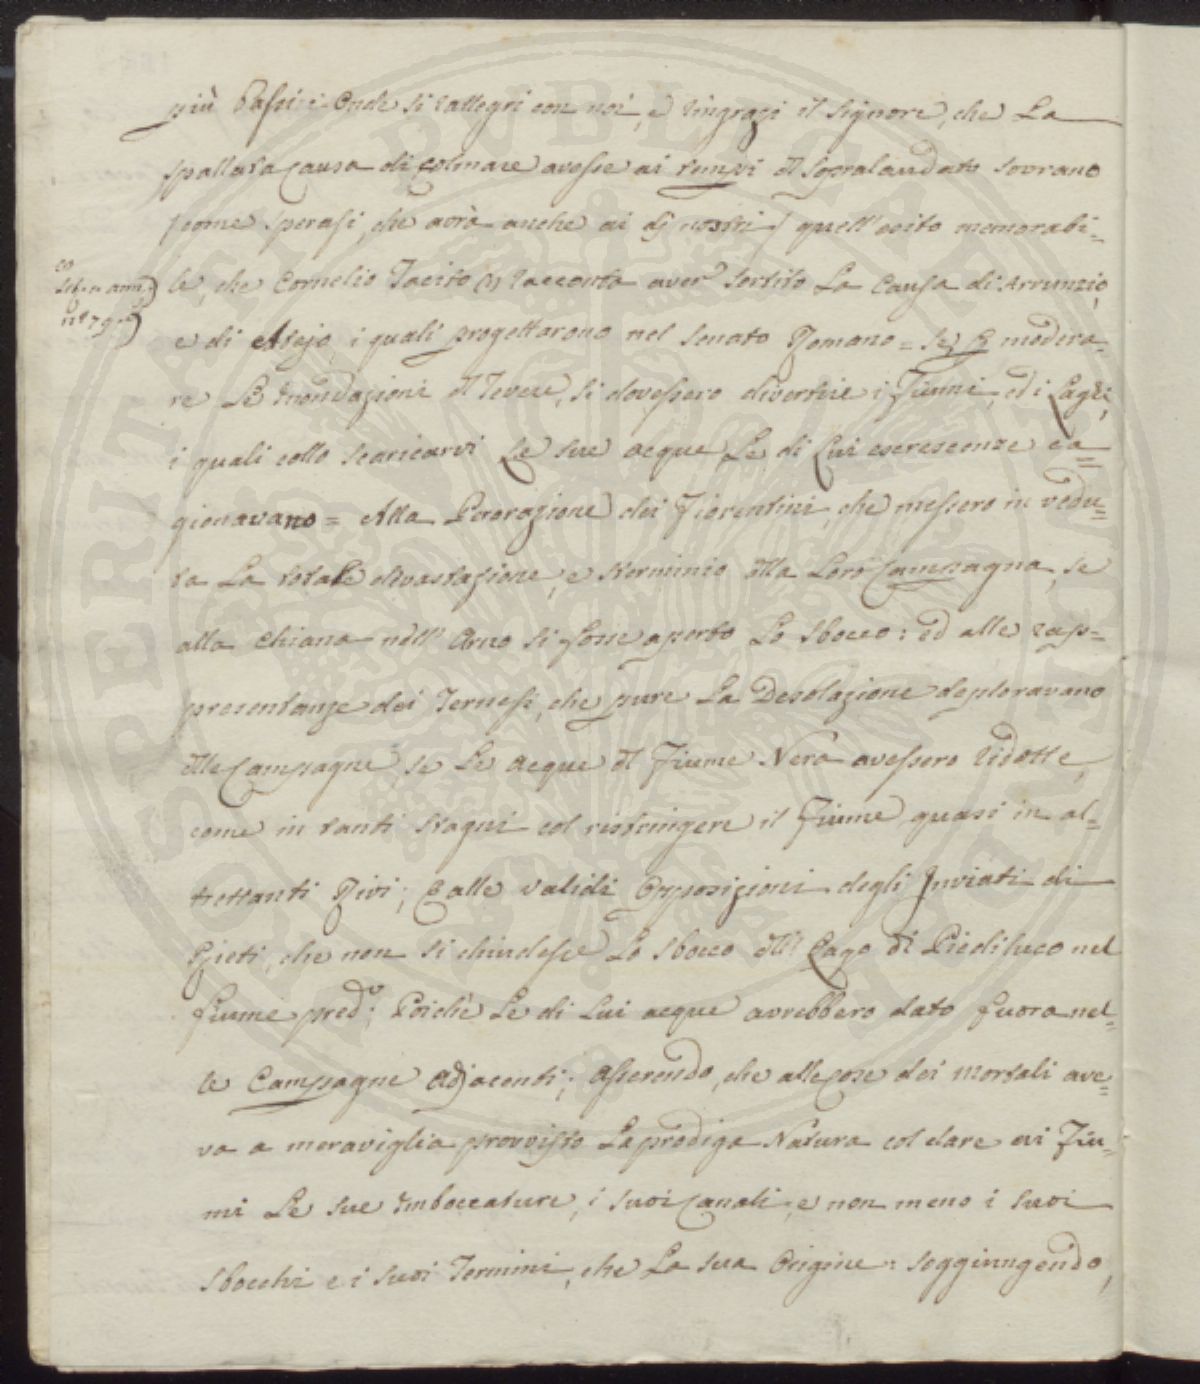 più Passi: Onde si rallegri con noi, e ringrazi il Signore, che La
spallata Causa di Colmare avesse ai tempi dl sopralaudato Sovrano
(come sperasi, che avrà anche ai dj nostri) quell'esito memorabi=
le, che Cornelio Tacito (1) racconta aver sortito La Causa di Arrunzio,
(1) n ann:
n° 79
e di Atejo, i quali progettarono nel Senato Romano = Se p modera=
re Le Inondazioni dl Tevere, si dovessero divertire i Fiumi, ed i Laghi,
i quali collo scaricarvi Le sue acque Le di Lui escrescenze ca=
gionavano = Alla Perorazione dei Fiorentini, che messero in vedu=
ta La totale devastazione, e sterminio dlla Loro Campagna, se
alla Chiana nell' Arno si fosse aperto Lo sbocco: ed alle rap=
presentanze dei Ternesi, che pure La Desolazione deploravano
dlle Campagne, se Le acque dl Fiume Nera avessero ridotte,
come in tanti stagni col ristringere il Fiume quasi in al=
trettanti Rivi; E alle validi Opposizioni degli Inviati di
Rieti, che non si chiudesse Lo sbocco dll' Lago di Piediluco nel
fiume pred.o; Poichè Le di Lui acque avrebbero dato fuora nel=
le Campagne Adjacenti; Asserendo, che alle cose dei mortali ave=
va a meraviglia provvisto La prodiga Natura col dare ai Fiu=
mi Le sue Imboccature, i suoi Canali, e non meno i suoi
Sbocchi e i suoi Termini, che La sua Origine: soggiungendo,